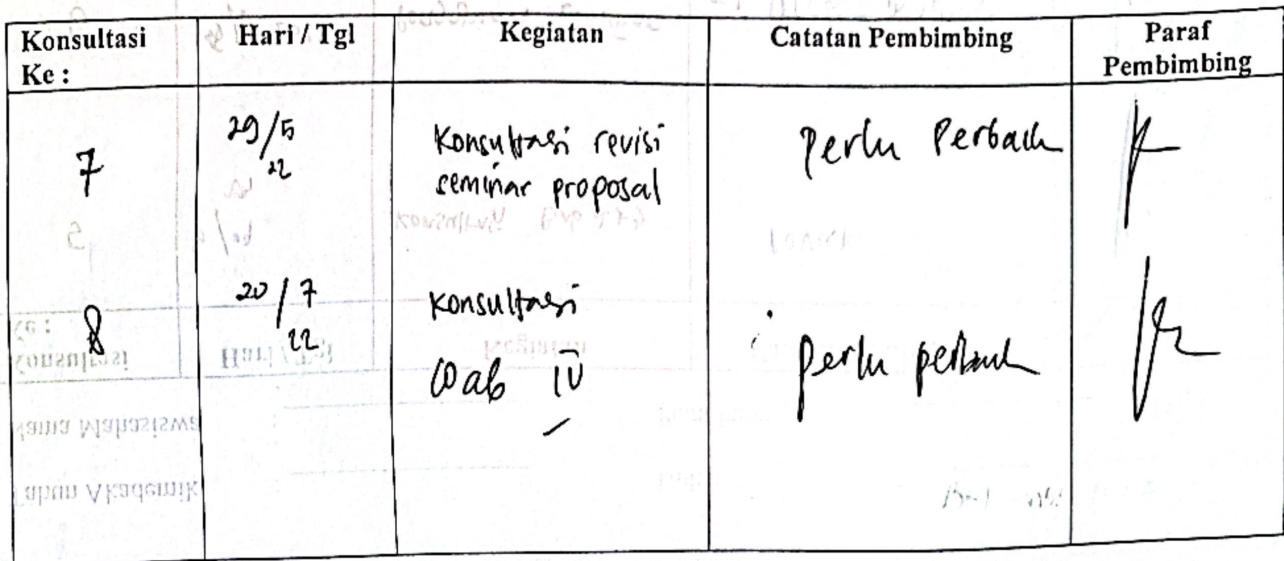 Konsultasi Ke : Hari / Tgl Kegiatan Catatan Pembimbing Paraf Pembimbing
7 29/5 22 Konsultasi revisi seminar proposal Perlu Perbaik
8 20/7 22 Konsultasi Bab IV Perlu perbaik